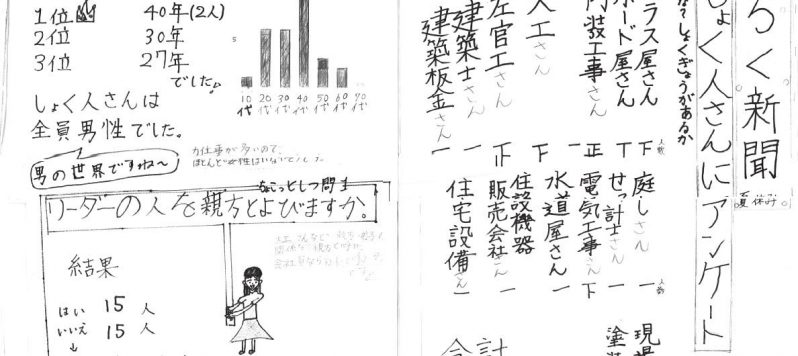 ろく新聞
夏休み
しょく人さんにアンケート
なしょくぎょうがあるか
人数
ラス屋さん 下
ボード屋さん 丅
内装工事さん 正
大工さん 下
左官工さん 正
建築士さん 一
建築板金さん 一
人数
庭しさん 一
せっ計士さん 一
電気工事さん 下
水道屋さん 一
住設機器
販売会社さん 一
住宅設備さん 一
現場
塗装
計
合
1位 40年(2人)
2位 30年
3位 27年
でした。
しょく人さんは
全員男性でした。
男の世界ですね〜
力仕事が多いので、
ほとんど女性はいないでした。
5
10代 20代 30代 40代 50代 60代 70代
リーダーの人を親方とよびますか。
結果
はい 15人
いいえ 15人
↓